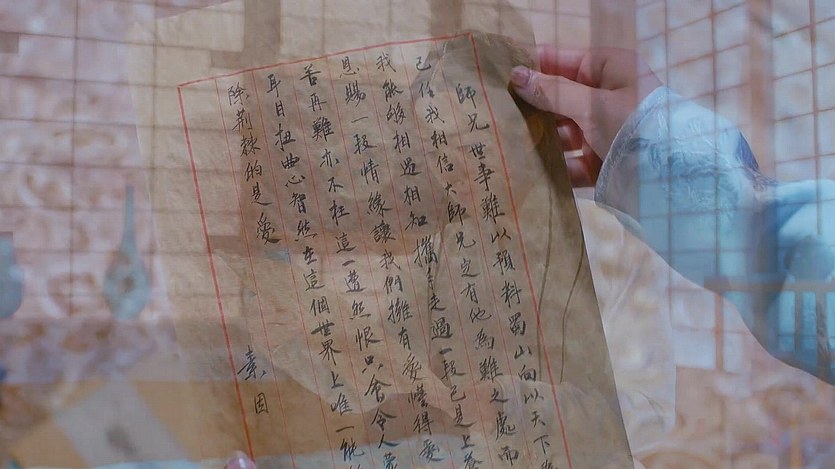 師兄世事難以預料蜀山向以天下
己任我相信大師兄定有他為難之處而
我能够相遇相知攜手走過一段已是上蒼
恩賜一段情緣讓我們擁有愛懂得愛
苦再難亦不枉這一遭然恨只會令人蒙
耳目扭曲心智然在這個世界上唯一能
除荊棘的是愛
素因